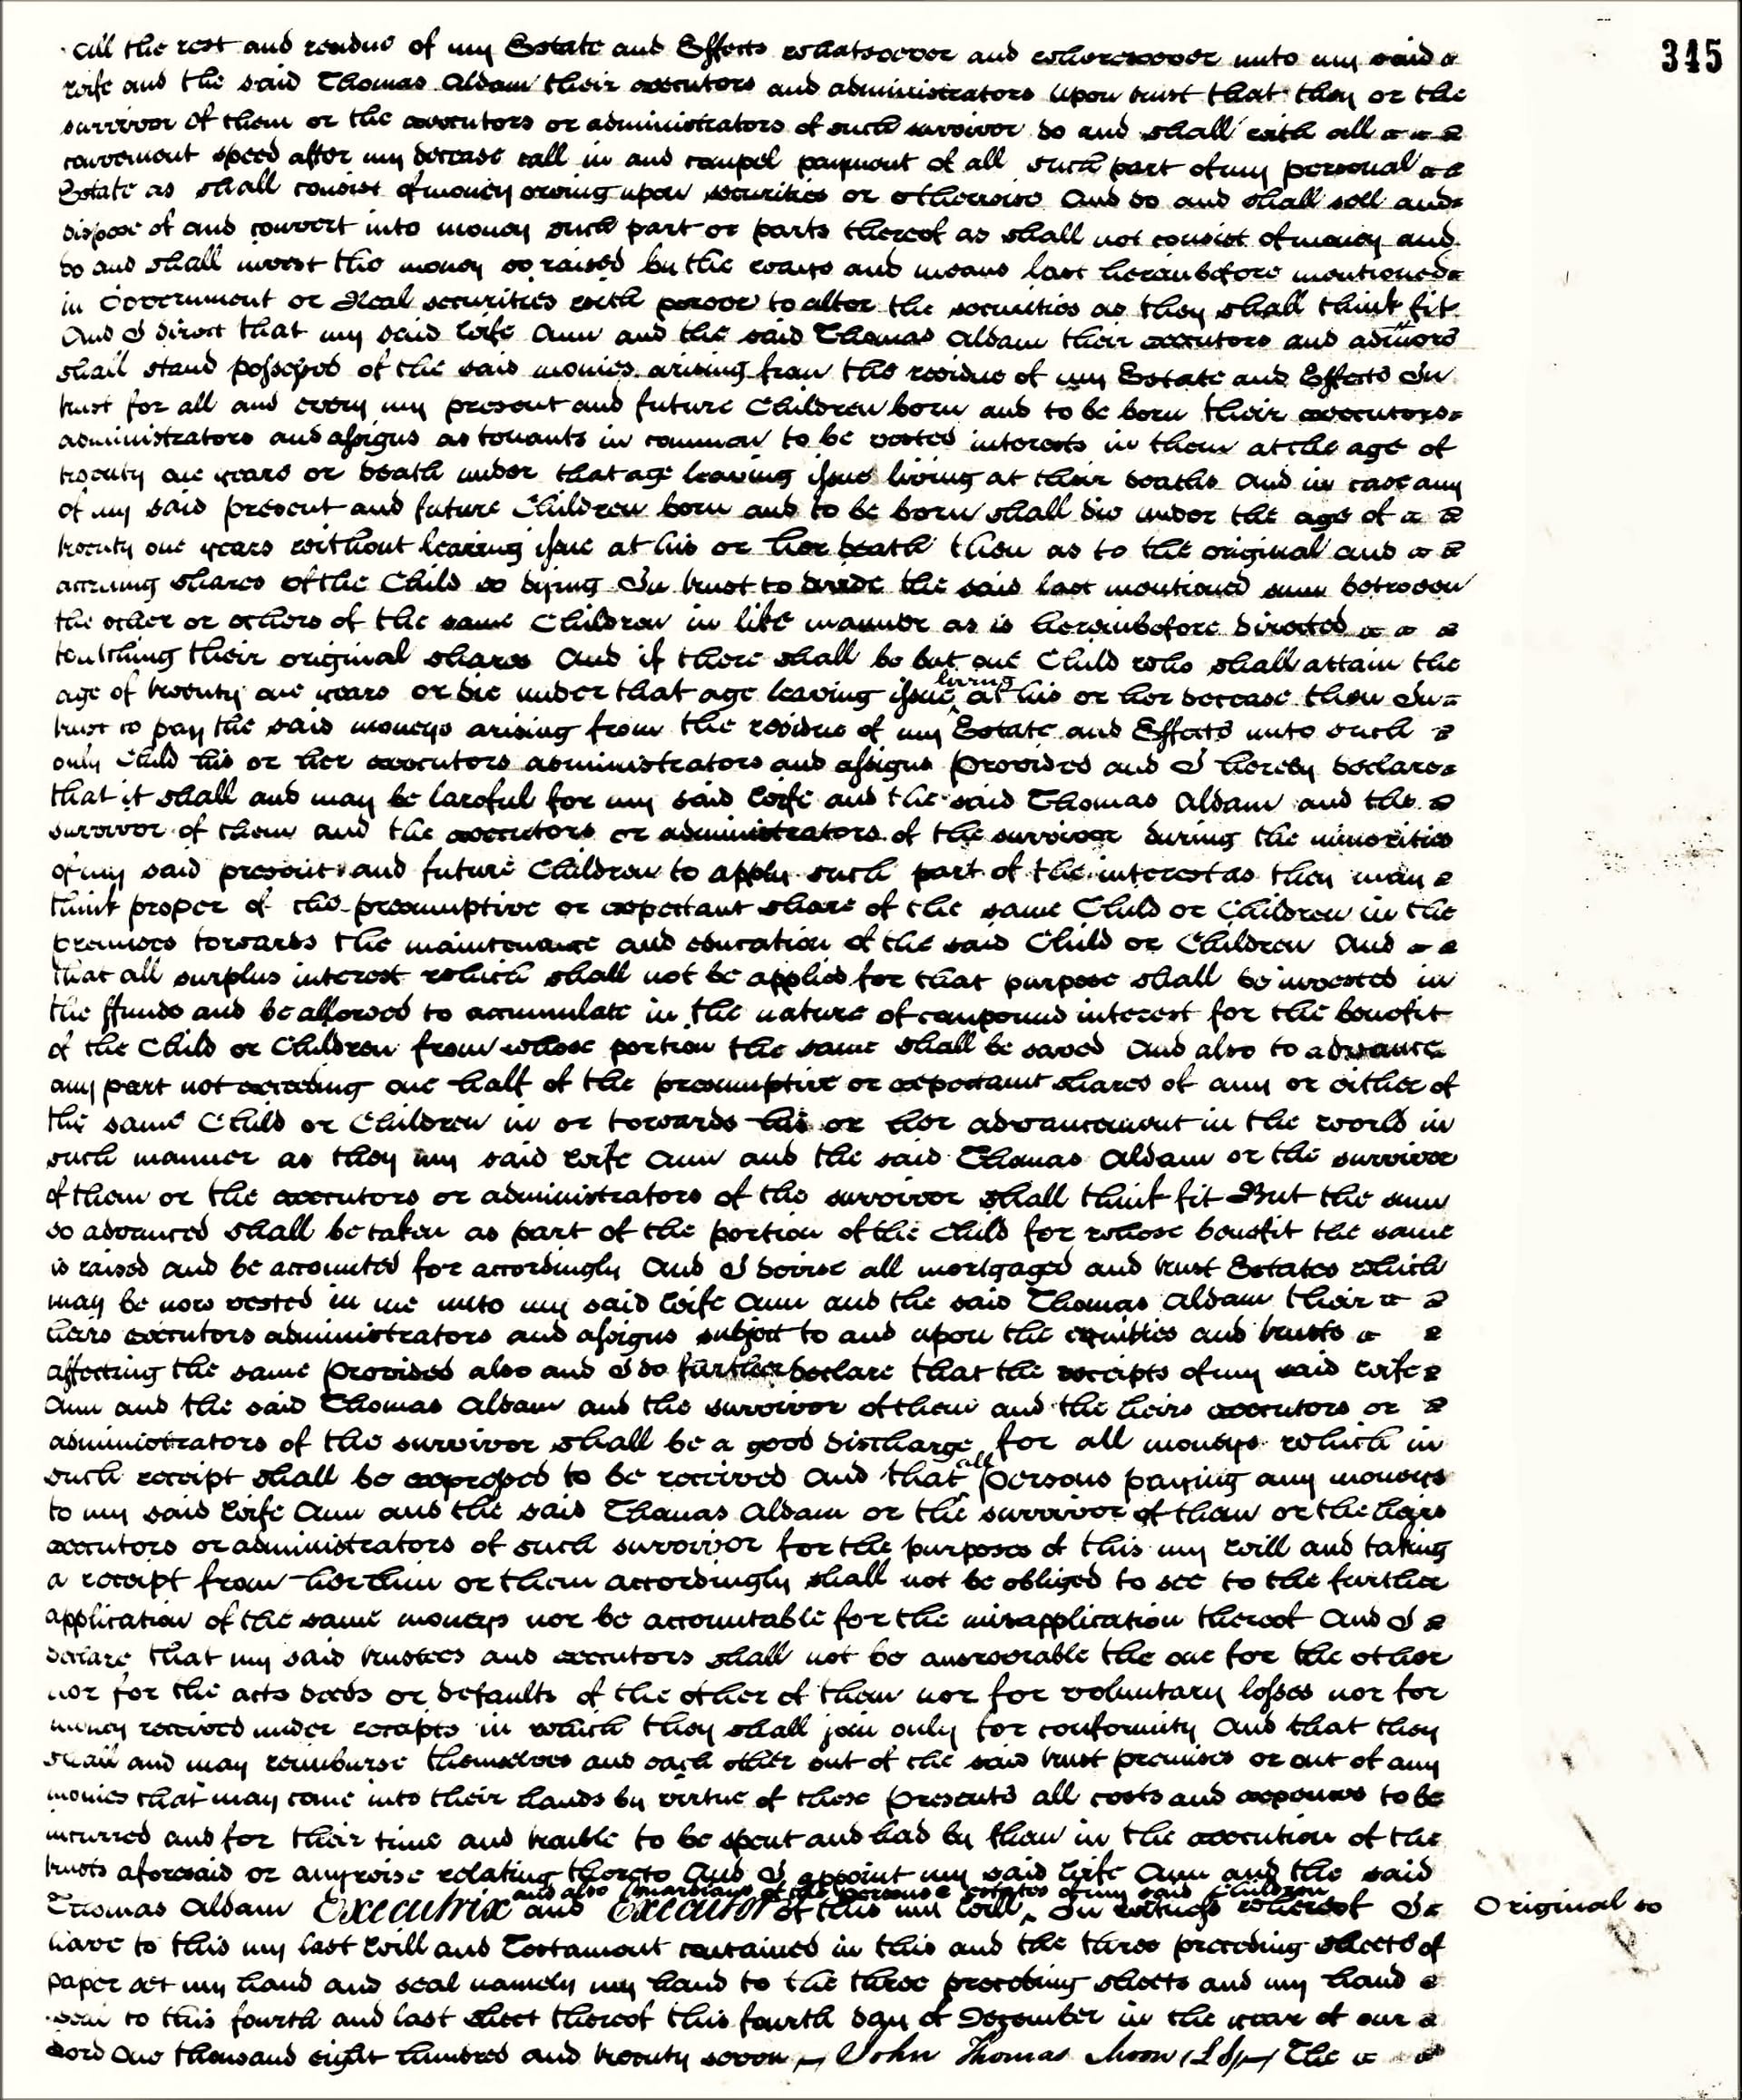 345
all the rest and residue of my Estate and Effects whatsoever and wheresoever unto my said
wife and the said Thomas Aldam their executors and administrators Upon trust that they or the
survivor of them or the executors or administrators of such survivor do and shall with all
convenient speed after my decease call in and compel payment of all such part of my personal
Estate as shall consist of money owing upon securities or otherwise And do and shall sell and
dispose of and convert into money such part or parts thereof as shall not consist of money and
do and shall invest the money so raised by the ways and means last hereinbefore mentioned
in Government or Real securities with power to alter the securities as they shall think fit
And I direct that my said Wife Ann and the said Thomas Aldam their executors and admors
shall stand possessed of the said monies arising from the residue of my Estate and Effects In
trust for all and every my present and future Children born and to be born their executors
administrators and assigns as tenants in common to be vested interests in them at the age of
twenty one years or death under that age leaving issue living at their deaths And in case any
of my said present and future Children born and to be born shall die under the age of
twenty one years without leaving issue at his or her death then as to the original and
accruing shares of the Child so dying In trust to divide the said last mentioned sum between
the other or others of the same Children in like manner as is hereinbefore directed
touching their original shares And if there shall be but one Child who shall attain the
age of twenty one years or die under that age leaving issue living at his or her decease then In
trust to pay the said moneys arising from the residue of my Estate and Effects unto such
only Child his or her executors administrators and assigns Provided and I hereby declare
that it shall and may be lawful for my said Wife and the said Thomas Aldam and the
survivor of them and the executors or administrators of the survivor during the minorities
of my said present and future Children to apply such part of the interest as they may
think proper of the presumptive or expectant share of the same Child or Children in the
premises towards the maintenance and education of the said Child or Children And
that all surplus interest which shall not be applied for that purpose shall be invested in
the ffunds and be allowed to accumulate in the nature of compound interest for the benefit
of the Child or Children from whose portion the same shall be saved And also to advance
any part not exceeding one half of the presumptive or expectant shares of any or either of
the same Child or Children in or towards his or her advancement in the world in
such manner as they my said Wife Ann and the said Thomas Aldam or the survivor
of them or the executors or administrators of the survivor shall think fit But the sum
so advanced shall be taken as part of the portion of the Child for whose benefit the same
is raised and be accounted for accordingly And I devise all mortgaged and trust Estates which
may be now vested in me unto my said Wife Ann and the said Thomas Aldam their
heirs executors administrators and assigns subject to and upon the equities and trusts
affecting the same Provided also and I do further declare that the receipts of my said Wife
Ann and the said Thomas Aldam and the survivor of them and the heirs executors or
administrators of the survivor shall be a good discharge for all moneys which in
such receipt shall be expressed to be received And that all persons paying any moneys
to my said Wife Ann and the said Thomas Aldam or the survivor of them or the heirs
executors or administrators of such survivor for the purposes of this my Will and taking
a receipt from her him or them accordingly shall not be obliged to see to the further
application of the same moneys nor be accountable for the misapplication thereof And I
declare that my said trustees and executors shall not be answerable the one for the other
nor for the acts deeds or defaults of the other of them nor for voluntary losses nor for
money received under receipts in which they shall join only for conformity And that they
shall and may reimburse themselves and each other out of the said trust premises or out of any
monies that may come into their hands by virtue of these Presents all costs and expences to be
incurred and for their time and trouble to be spent and had by them in the execution of the
trusts aforesaid or anywise relating thereto And I appoint my said Wife Ann and the said
and also Guardians of the persons & estates of my said Children
Thomas Aldam Executrix and Executor of this my Will In witness whereof I
Original so
have to this my last Will and Testament contained in this and the three preceding sheets of
paper set my hand and seal namely my hand to the three preceding sheets and my hand &
seal to this fourth and last sheet thereof this fourth day of December in the year of our
Lord One thousand eight hundred and twenty seven John Thomas Moon (LS) The